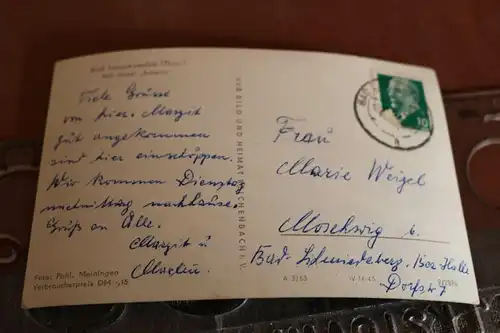 Bad Frankenhausen (Kyffh.)
Viele Grüße
von hier. Margit
gut angekommen
sind hier einschöppen.
Wir kommen Dienstag
nachmittag nachhause.
Gruß an Alle.
Margit u
Foto: Pohl, Meiningen
Verbraucherpreis DM
VEB BILD UND HEIMAT REICHENBACH i. V.
A 3/63 IV-14-45
10
Frau
Marie Weigel
Moschwig b.
Bad-Schmiedeberg. Bez. Halle
Dorfstr 7